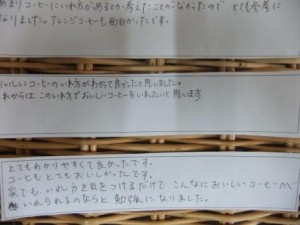 あまりコーヒーにいれ方があるとか考えたことがなかったので、とても参考に
なりました。アレンジコーヒーも面白かったです。
おいしいコーヒーのいれ方がわかって良かったと思いました。
これからは このいれ方でおいしいコーヒーをいれたいと思います
とてもわかりやすくて良かったです。
コーヒーもとてもおいしかったです。
家でも、いれ方を気をつけるだけで、こんなにおいしいコーヒーが
いれられるのならと 勉強になりました。